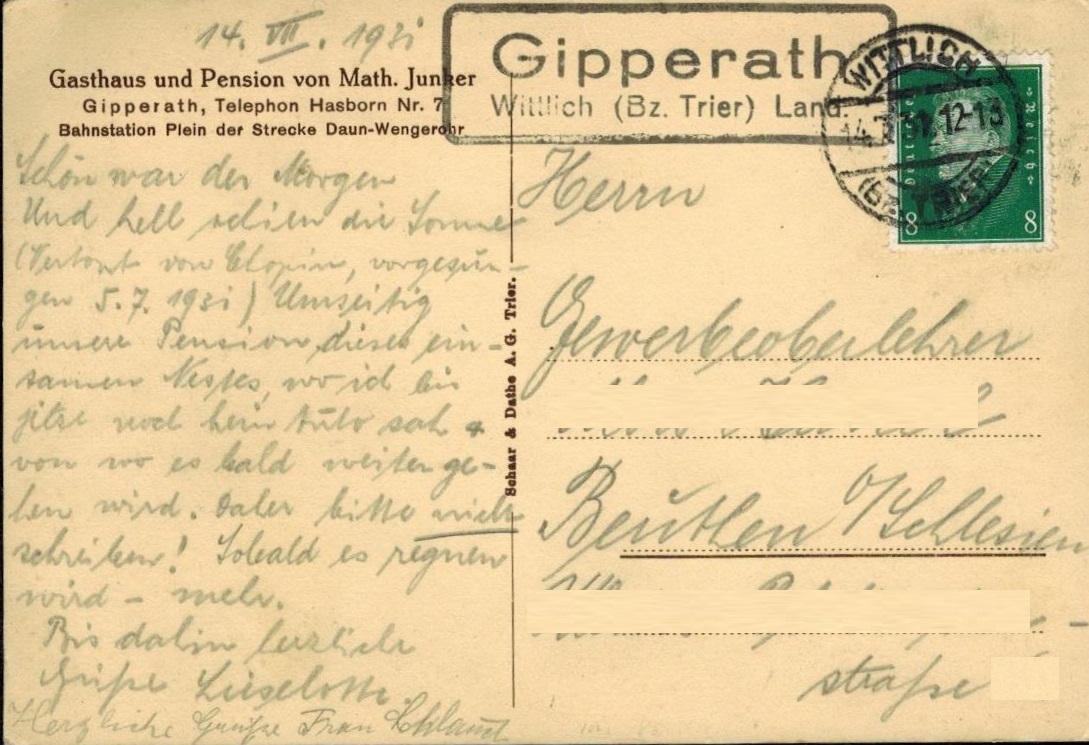 14. VII. 1931
Gasthaus und Pension von Math. Junker
Gipperath, Telephon Hasborn Nr. 7
Bahnstation Plein der Strecke Daun-Wengerohr
Schön war der Morgen
Und hell schien die Sonne
(Vertont von Chopin, vorgesun-
gen 5.7. 1931) Umseitig
unsere Pension dieses ein-
samen Nestes, wo ich bis
jetzt noch kein Auto sah &
von wo es bald weiter ge-
hen wird. Daher bitte nicht
schreiben! Sobald es regnen
wird – mehr.
Bis dahin herzliche
Grüße Lieselotte
Herzliche Grüße Frau
Schaar & Dathe A. G. Trier.
Gipperath
Wittlich (Bz. Trier) Land.
WITTLICH
14.7.31.12-13
(Bz. TRIER)
Deutsches Reich
8 8
Herrn
Gewerbeoberlehrer
Beuthen O/Schlesien
straße